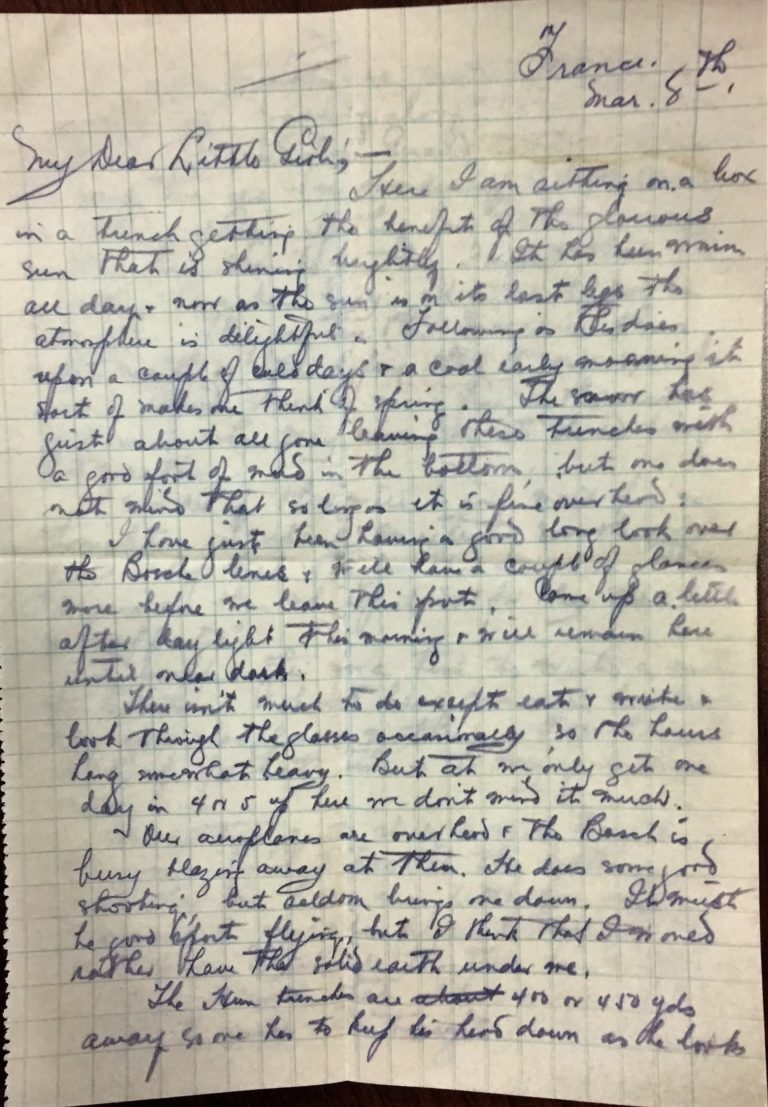 France.
Mar. 8th.
My Dear Little Girlis,—
Here I am sitting on a box
in a trench getting the benefit of the glorious
sun that is shining brightly. It has been warm
all day & now as the sun is on its last legs the
atmosphere is delightful. Following as this does
upon a couple of cold days & a cool early morning it
sort of makes one think of spring. The snow has
just about all gone leaving these trenches with
a good foot of mud in the bottom, but one does
not mind that so long as it is fine overhead.
I have just been having a good long look over
the Bosche lines & will have a couple of glances
more before we leave this post. Came up a little
after day light this morning & will remain here
until near dark.
There isn't much to do except eat & write &
look through the glasses occasionally so the hours
hang somewhat heavy. But as we only get one
day in 4 or 5 up here we don't mind it much.
Our aeroplanes are overhead & the Bosch is
busy blazing away at them. He does some good
shooting, but seldom brings one down. It must
be good sport flying, but I think that I would
rather have the solid earth under me.
The Hun trenches are about 400 or 450 yds
away so one has to keep his head down as he looks